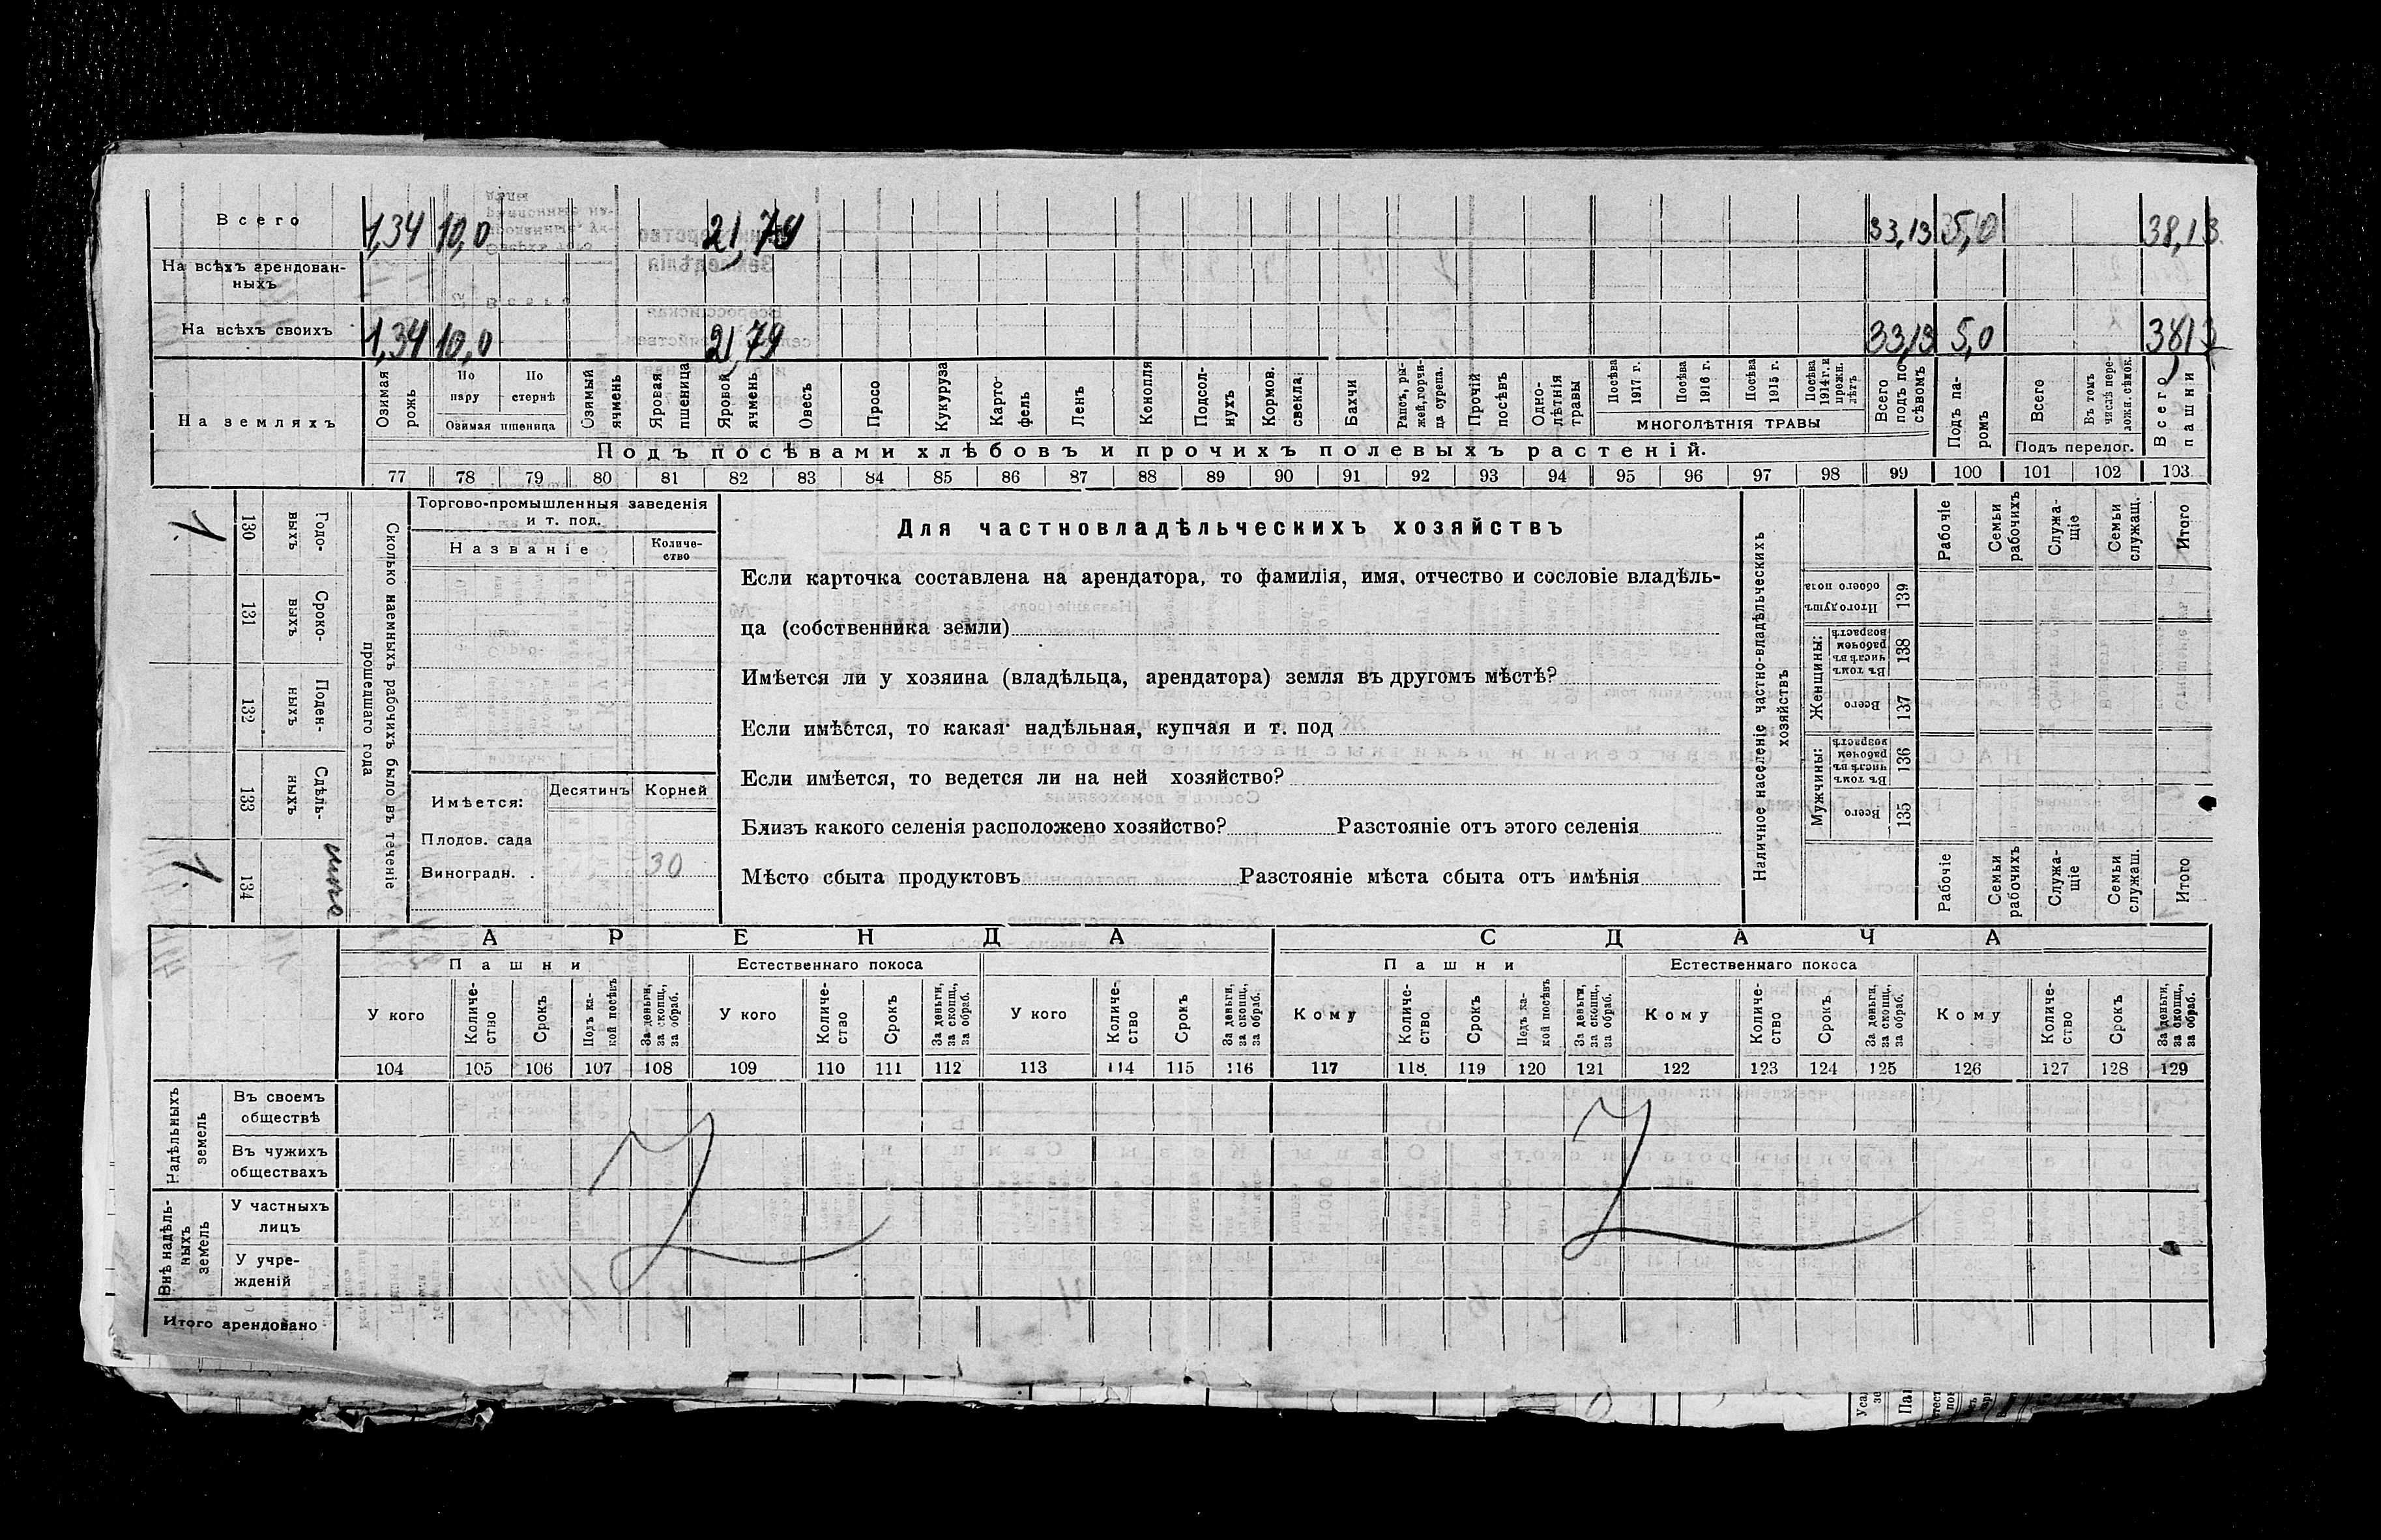 Всего 1,34 10,0 21,79 33,13 5,0 38,13
На всѣхъ арендован-
ныхъ
На всѣхъ своихъ 1,34 10,0 21,79 33,13 5,0 38,13
На земляхъ
Озимая рожь
По пару
По стернѣ
Озимая пшеница
Озимый ячмень
Яровая пшеница
Яровой ячмень
Овесъ
Просо
Кукуруза
Карто-
фель
Ленъ
Конопля
Подсол-
нухъ
Кормов. свекла
Бахчи
Рапсъ, ры-
жей, горчи-
ца сурепа.
Прочій посѣвъ
Одно-
лѣтнія травы
Посѣва 1917 г.
Посѣва 1916 г.
Посѣва 1915 г.
Посѣва 1914 г. и прежн. лѣтъ
МНОГОЛѢТНІЯ ТРАВЫ
Всего подъ по-
сѣвомъ
Подъ па-
ромъ
Всего
Въ томъ числѣ пере-
ложн. сѣнок.
Подъ перелог.
Всего пашни
Подъ посѣвами хлѣбовъ и прочихъ полевыхъ растеній.
77 78 79 80 81 82 83 84 85 86 87 88 89 90 91 92 93 94 95 96 97 98 99 100 101 102 103
Сколько наемныхъ рабочихъ было въ теченіе
прошедшаго года
Годо-
выхъ
130
1.
Сроко-
выхъ
131
Поден-
ныхъ
132
Сдѣль-
ныхъ
133
134
1.
Торгово-промышленныя заведенія
и т. под.
Названіе
Количе-
ство
Имѣется:
Десятинъ
Корней
Плодов. сада
Виноградн. . 30
Для частновладѣльческихъ хозяйствъ
Если карточка составлена на арендатора, то фамилія, имя, отчество и сословіе владѣль-
ца (собственника земли)
Имѣется ли у хозяина (владѣльца, арендатора) земля въ другомъ мѣстѣ?
Если имѣется, то какая: надѣльная, купчая и т. под
Если имѣется, то ведется ли на ней хозяйство?
Близъ какого селенія расположено хозяйство? Разстояніе отъ этого селенія
Мѣсто сбыта продуктовъ Разстояніе мѣста сбыта отъ имѣнія
Наличное населеніе частно-владѣльческихъ
хозяйствъ
Рабочіе
Семьи рабочихъ
Служа-
щіе
Семьи служащ.
Итого
Итого душъ обоего пола
139
Женщины:
Въ томъ числѣ въ рабочемъ возрастѣ
138
Всего
137
Мужчины:
Въ томъ числѣ въ рабочемъ возрастѣ
136
Всего
135
Рабочіе
Семьи рабочихъ
Служа-
щіе
Семьи служащ.
Итого
АРЕНДА СДАЧА
Пашни Естественнаго покоса Пашни Естественнаго покоса
У кого
Количе-
ство
Срокъ
Подъ ка-
кой посѣвъ
За деньги, за скопщ., за обраб.
У кого
Количе-
ство
Срокъ
За деньги, за скопщ., за обраб.
У кого
Количе-
ство
Срокъ
За деньги, за скопщ., за обраб.
Кому
Количе-
ство
Срокъ
Подъ ка-
кой посѣвъ
За деньги, за скопщ., за обраб.
Кому
Количе-
ство
Срокъ
За деньги, за скопщ., за обраб.
Кому
Количе-
ство
Срокъ
За деньги, за скопщ., за обраб.
104 105 106 107 108 109 110 111 112 113 114 115 116 117 118 119 120 121 122 123 124 125 126 127 128 129
Надѣльныхъ земель
Въ своемъ
обществѣ
Въ чужихъ
обществахъ
Внѣ надѣль-
ныхъ земель
У частныхъ
лицъ
У учре-
жденій
Итого арендовано